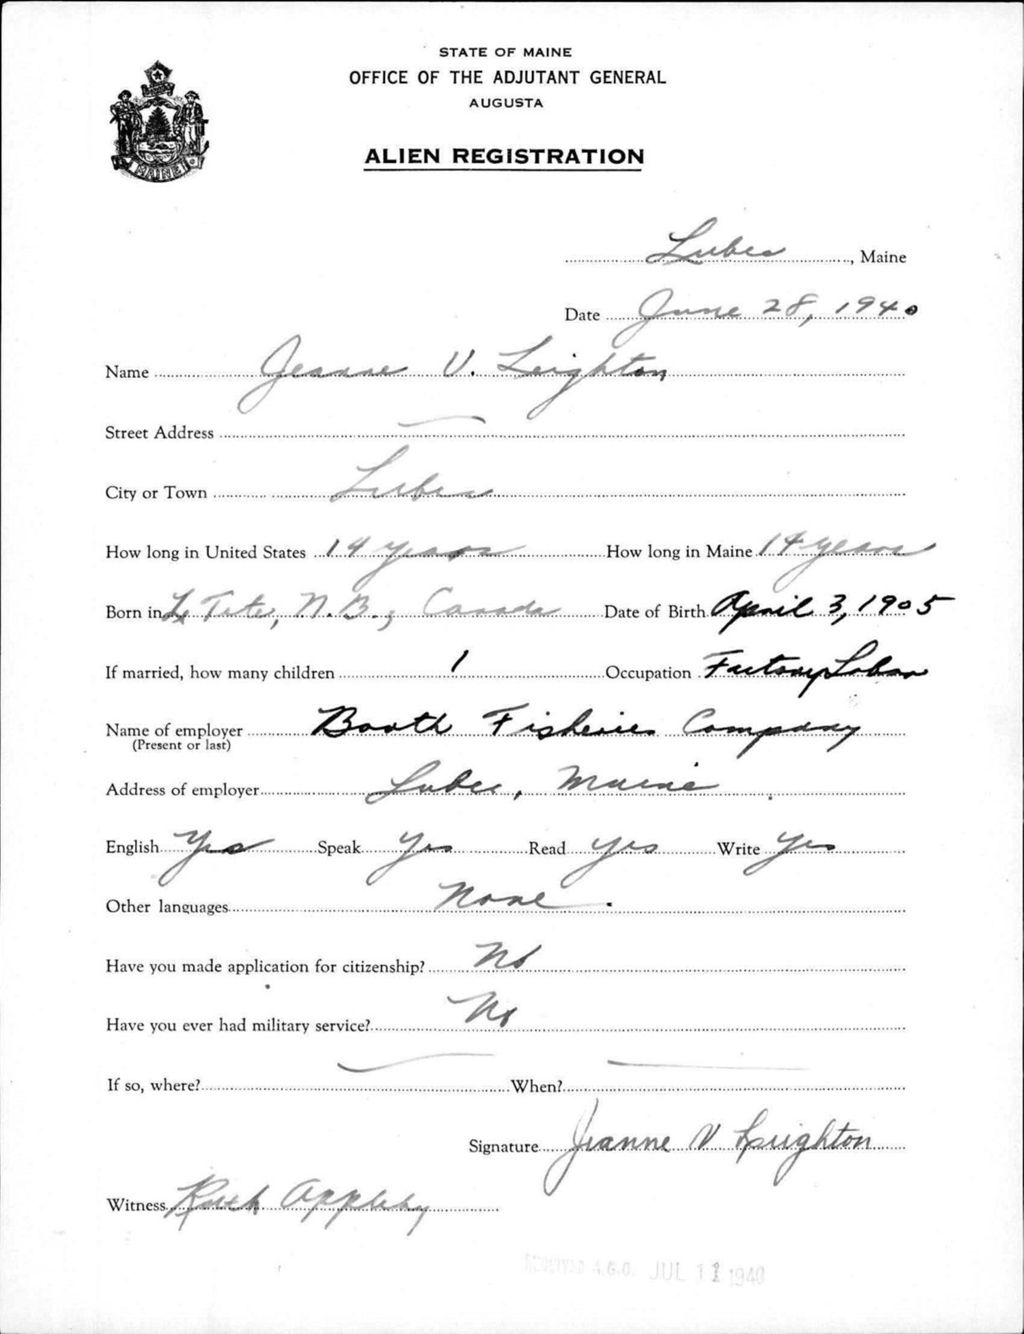 STATE OF MAINE
OFFICE OF THE ADJUTANT GENERAL
AUGUSTA
ALIEN REGISTRATION
MAINE
Lubec, Maine
Date June 28, 1940
Name Jeanne V. Leighton
Street Address —
City or Town Lubec
How long in United States 14 years How long in Maine 14 years
Born in L. Tete, N.B., Canada Date of Birth April 3, 1905
If married, how many children 1 Occupation Factory Labor
Name of employer Booth Fisheries Company
(Present or last)
Address of employer Lubec, Maine
English Yes Speak Yes Read Yes Write Yes
Other languages None.
Have you made application for citizenship? No
Have you ever had military service? No
If so, where? — When? —
Signature Jeanne V Leighton
Witness Ruth Appleby
RECEIVED A.G.O. JUL 11 1940